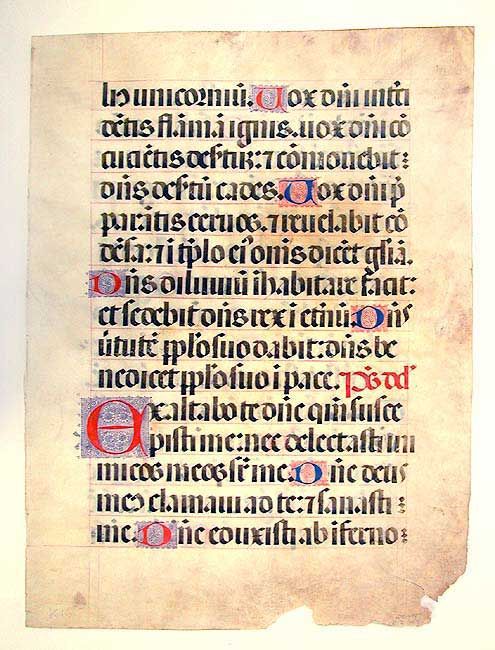 lius unicorniū. Uox dn̄i int̄ci
dētis flāmā ignis. uox dn̄i cō
cucīētis desertū: ⁊ cōmouebit :
dn̄s desertū cades. Uox dn̄i p̄
parātis ceruos. ⁊ reuelabit cō
dēsa: ⁊ i tp̄lo eiꝰ om̄s dicēt gl̄iā.
Dn̄s diluuiū īhabitare facit:
et sedebit dn̄s rex i et̄nū. Dn̄s
uirtutē pp̄lo suo dabit: dn̄s be
nedicet pp̄lo suo i pace. Ps̄ dd̄
Exaltabo te dn̄e qm̄ susce
pisti me: nec delectasti ini
micos meos sr̄ me. Dn̄e deus
meꝰ clamaui ad te: ⁊ sanasti :
me. Dn̄e eduxisti ab īferno :